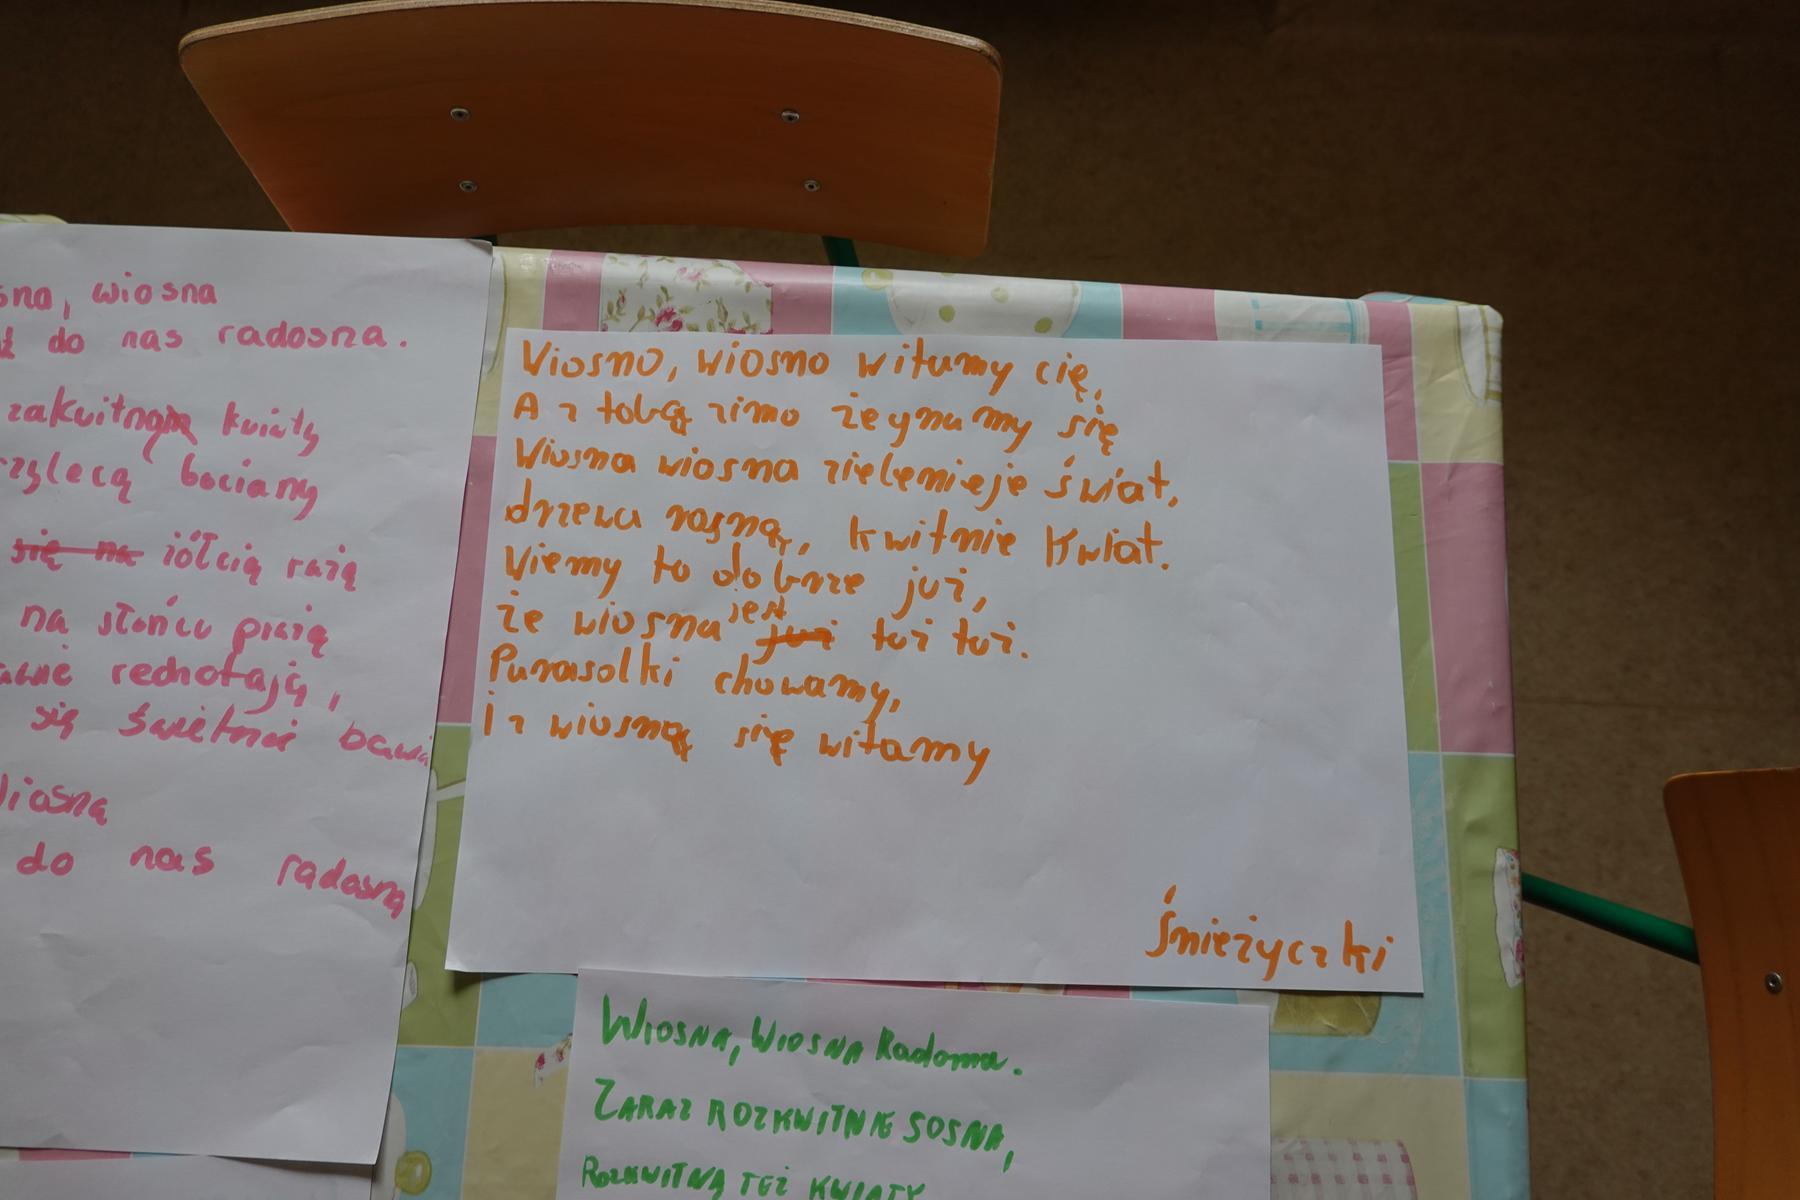 wiosna
do nas radosna.
zakwitnom kwiaty
bociany
się na żółcią rażą
na słońcu prażą
rechotają,
się świetnie bawią
Wiosna
do nas radosna
Wiosno, wiosno witamy cię,
A z tobą zimo żegnamy się
Wiosna wiosna zielenieje świat,
drzewa rosną, kwitnie kwiat.
Wiemy to dobrze już,
że wiosna jest już tuż tuż.
Parasolki chowamy,
i z wiosną się witamy
Śnieżyczki
WIOSNA, WIOSNA Radosna.
ZARAZ ROZKWITNIE SOSNA,
ROZKWITNĄ TEŻ KWIATY